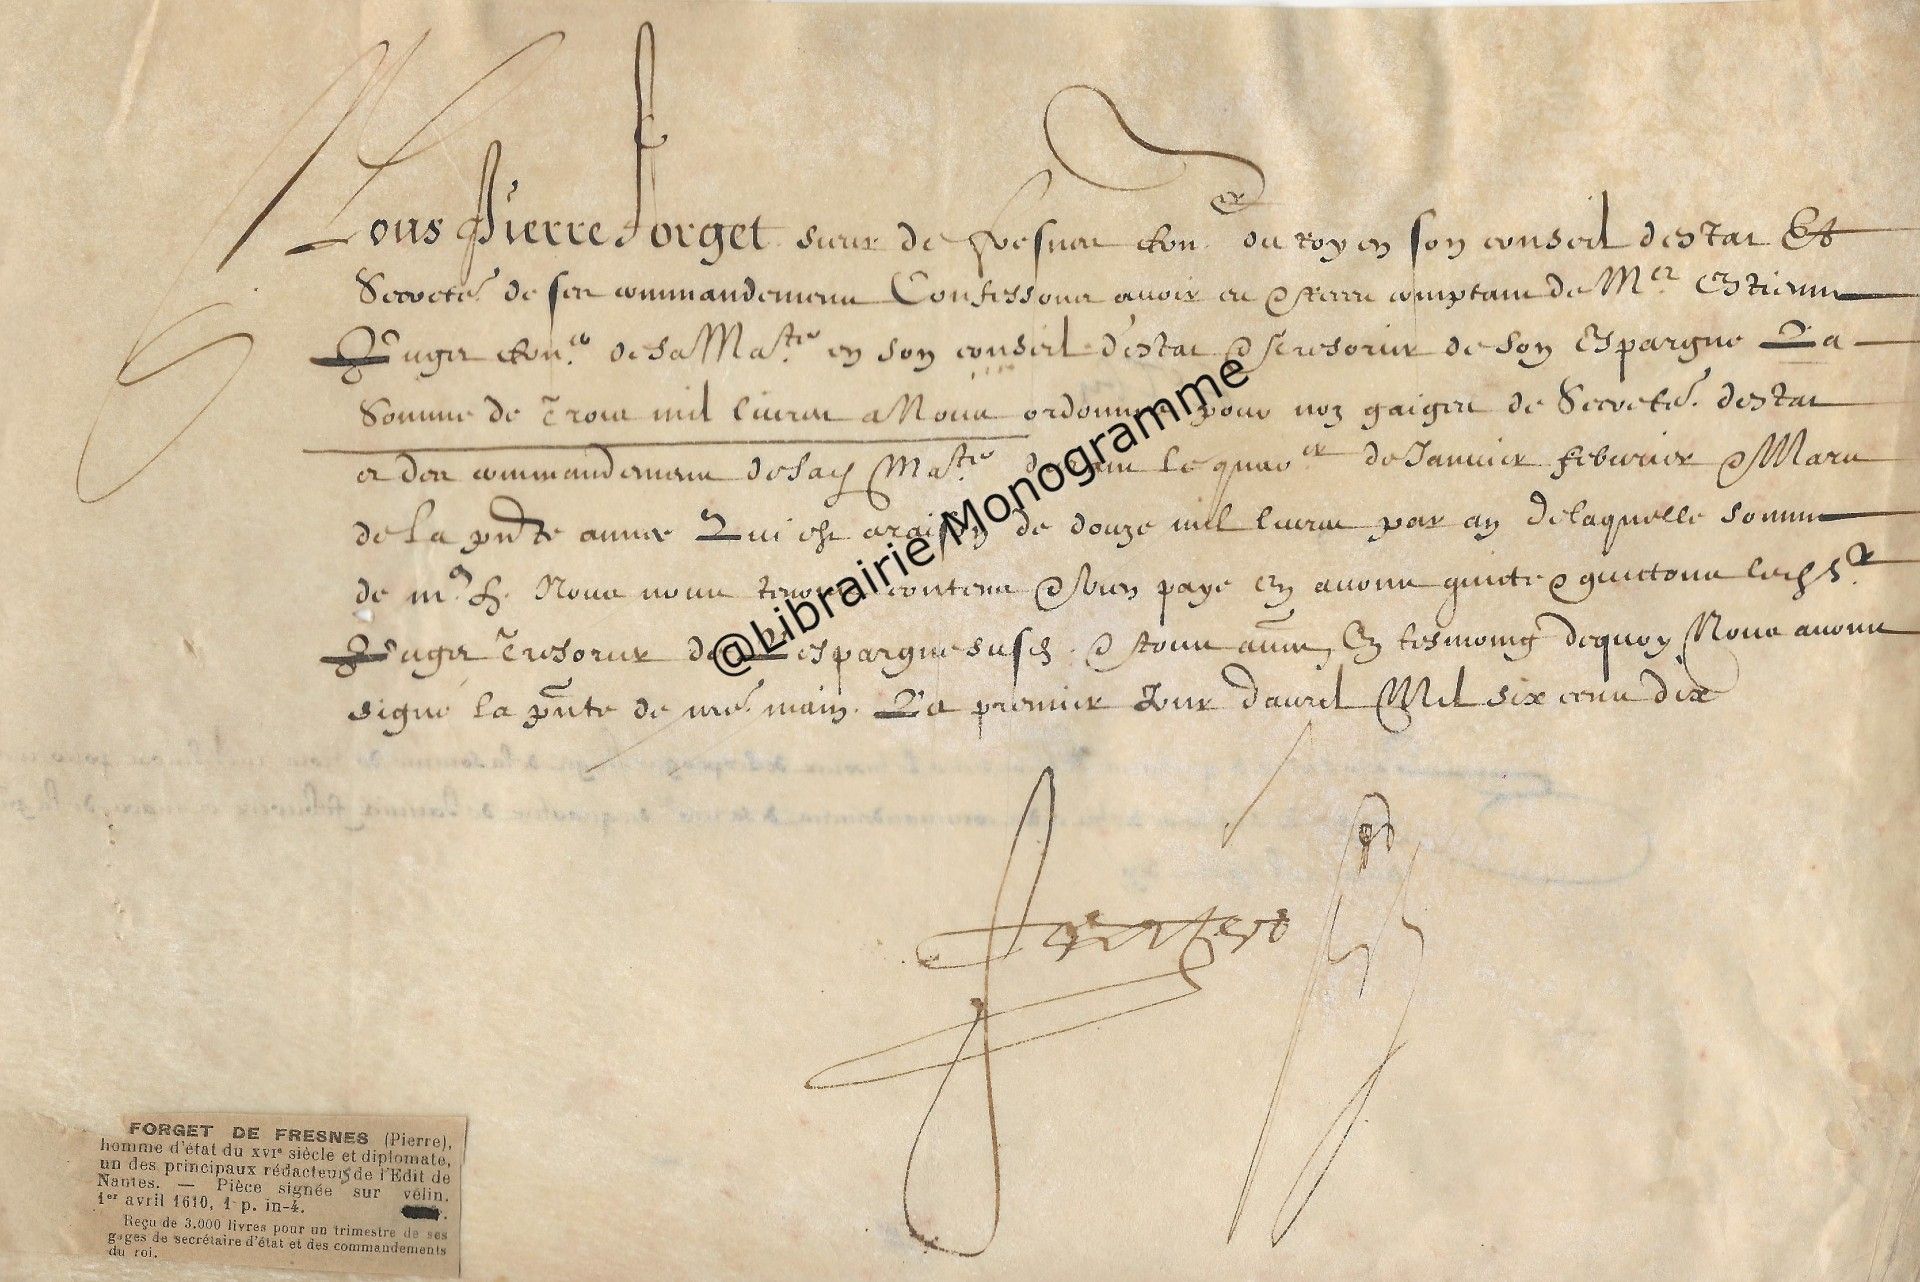 Nous Pierre Forget sieur de fresnes con.er du roy en son conseil destat Et
Secret.e de ses commandemens Confessons avoir eu & receu comptant de M.er Estienne
Puget con.er de sa Ma.te en son conseil destat & tresorier de son Espargne La
Somme de Trois mil livres a Nous ordonnee pour noz gaiges de Secret.e destat
et des commandemens de sad Ma.te durant le quar.er de Janvier febvrier & Mars
de la pnte annee Qui est a raison de douze mil livres par an de laquelle somme
de Nous nous tenons contens & bien paye En avons quicte & quictons led s.r
Puget Tresorier de L'espargne susd. & tous au.es En tesmoing dequoy Nous avons
signe la pnte de nre. main. Le premier Jour davril Mil six cens dix
Forget
@Librairie Monogramme
FORGET DE FRESNES (Pierre),
homme d'état du XVIe siècle et diplomate,
un des principaux rédacteurs de l'Edit de
Nantes. — Pièce signée sur vélin.
1er avril 1610, 1 p. in-4.
Reçu de 3.000 livres pour un trimestre de ses
gages de secrétaire d'état et des commandements
du roi.